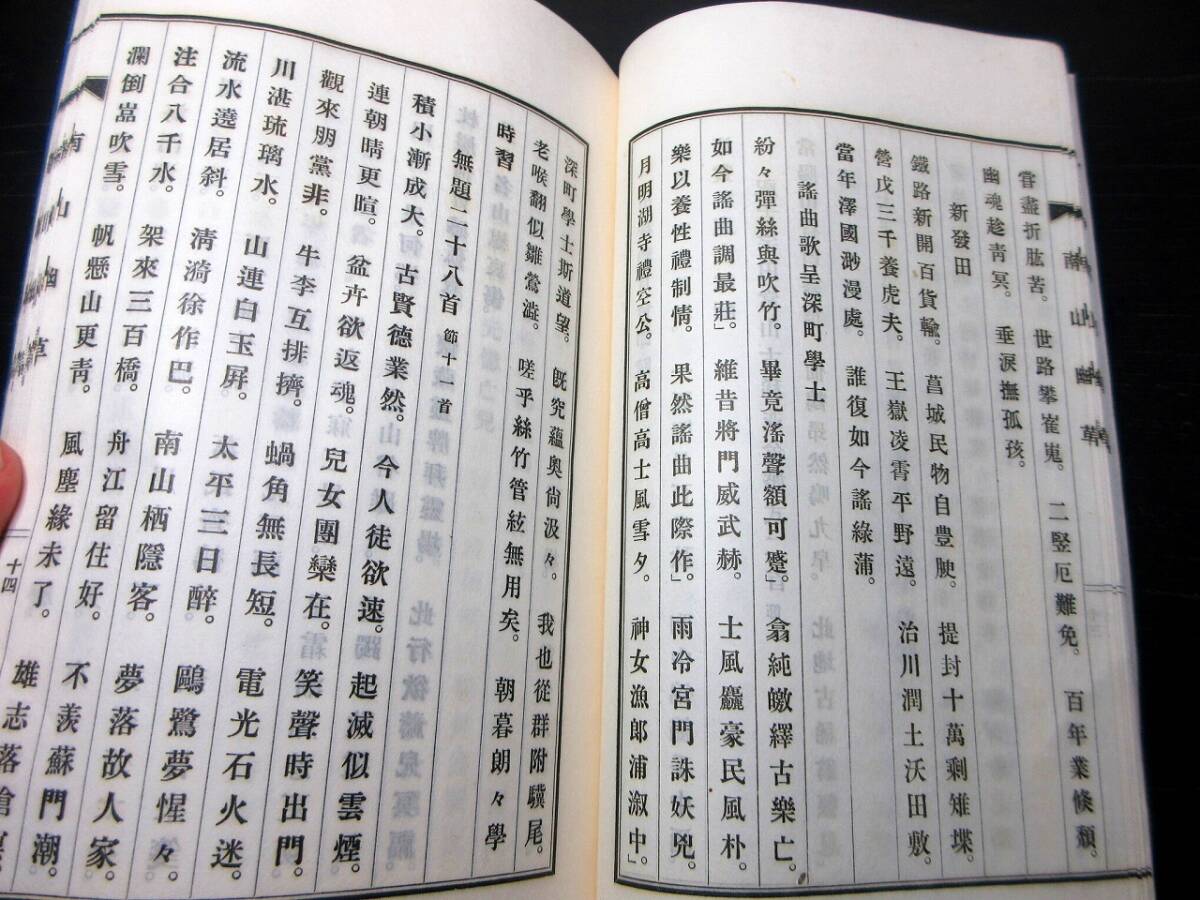 南山幽草
嘗盡折肱苦。世路攀崔嵬。二豎厄難免。百年業倏頽。
幽魂趁靑冥。垂淚撫孤孩。
新發田
鐵路新開百貨輸。菖城民物自豊腴。提封十萬剩雉堞。
營戍三千養虎夫。王嶽凌霄平野遠。治川潤土沃田敷。
當年澤國渺漫處。誰復如今謠綠蒲。
謠曲歌呈深町學士
紛々彈絲與吹竹。畢竟滛聲額可蹙。翕純皦繹古樂亡。
如今謠曲調最莊」維昔將門威武赫。士風麤豪民風朴。
樂以養性禮制情。果然謠曲此際作」雨冷宮門誅妖兇。
月明湖寺禮空公。高僧高士風雪夕。神女漁郎浦溆中」
深町學士斯道望。旣究蘊奧尙汲々。我也從群附驥尾。
老喉翻似雛鶯澁。嗟乎絲竹管絃無用矣。朝暮朗々學
時習
無題二十八首 節十一首
積小漸成大。古賢德業然。今人徒欲速。起滅似雲煙。
連朝晴更暄。盆卉欲返魂。兒女團欒在。笑聲時出門。
觀來朋黨非。牛李互排擠。蝸角無長短。電光石火迷。
川湛琉璃水。山連白玉屛。太平三日醉。鷗鷺夢惺々。
流水遶居斜。淸漪徐作巴。南山栖隱客。夢落故人家。
注合八千水。架來三百橋。舟江留住好。不羨蘇門潮。
瀾倒嵓吹雪。帆懸山更靑。風塵緣未了。雄志落
南山幽草
十四